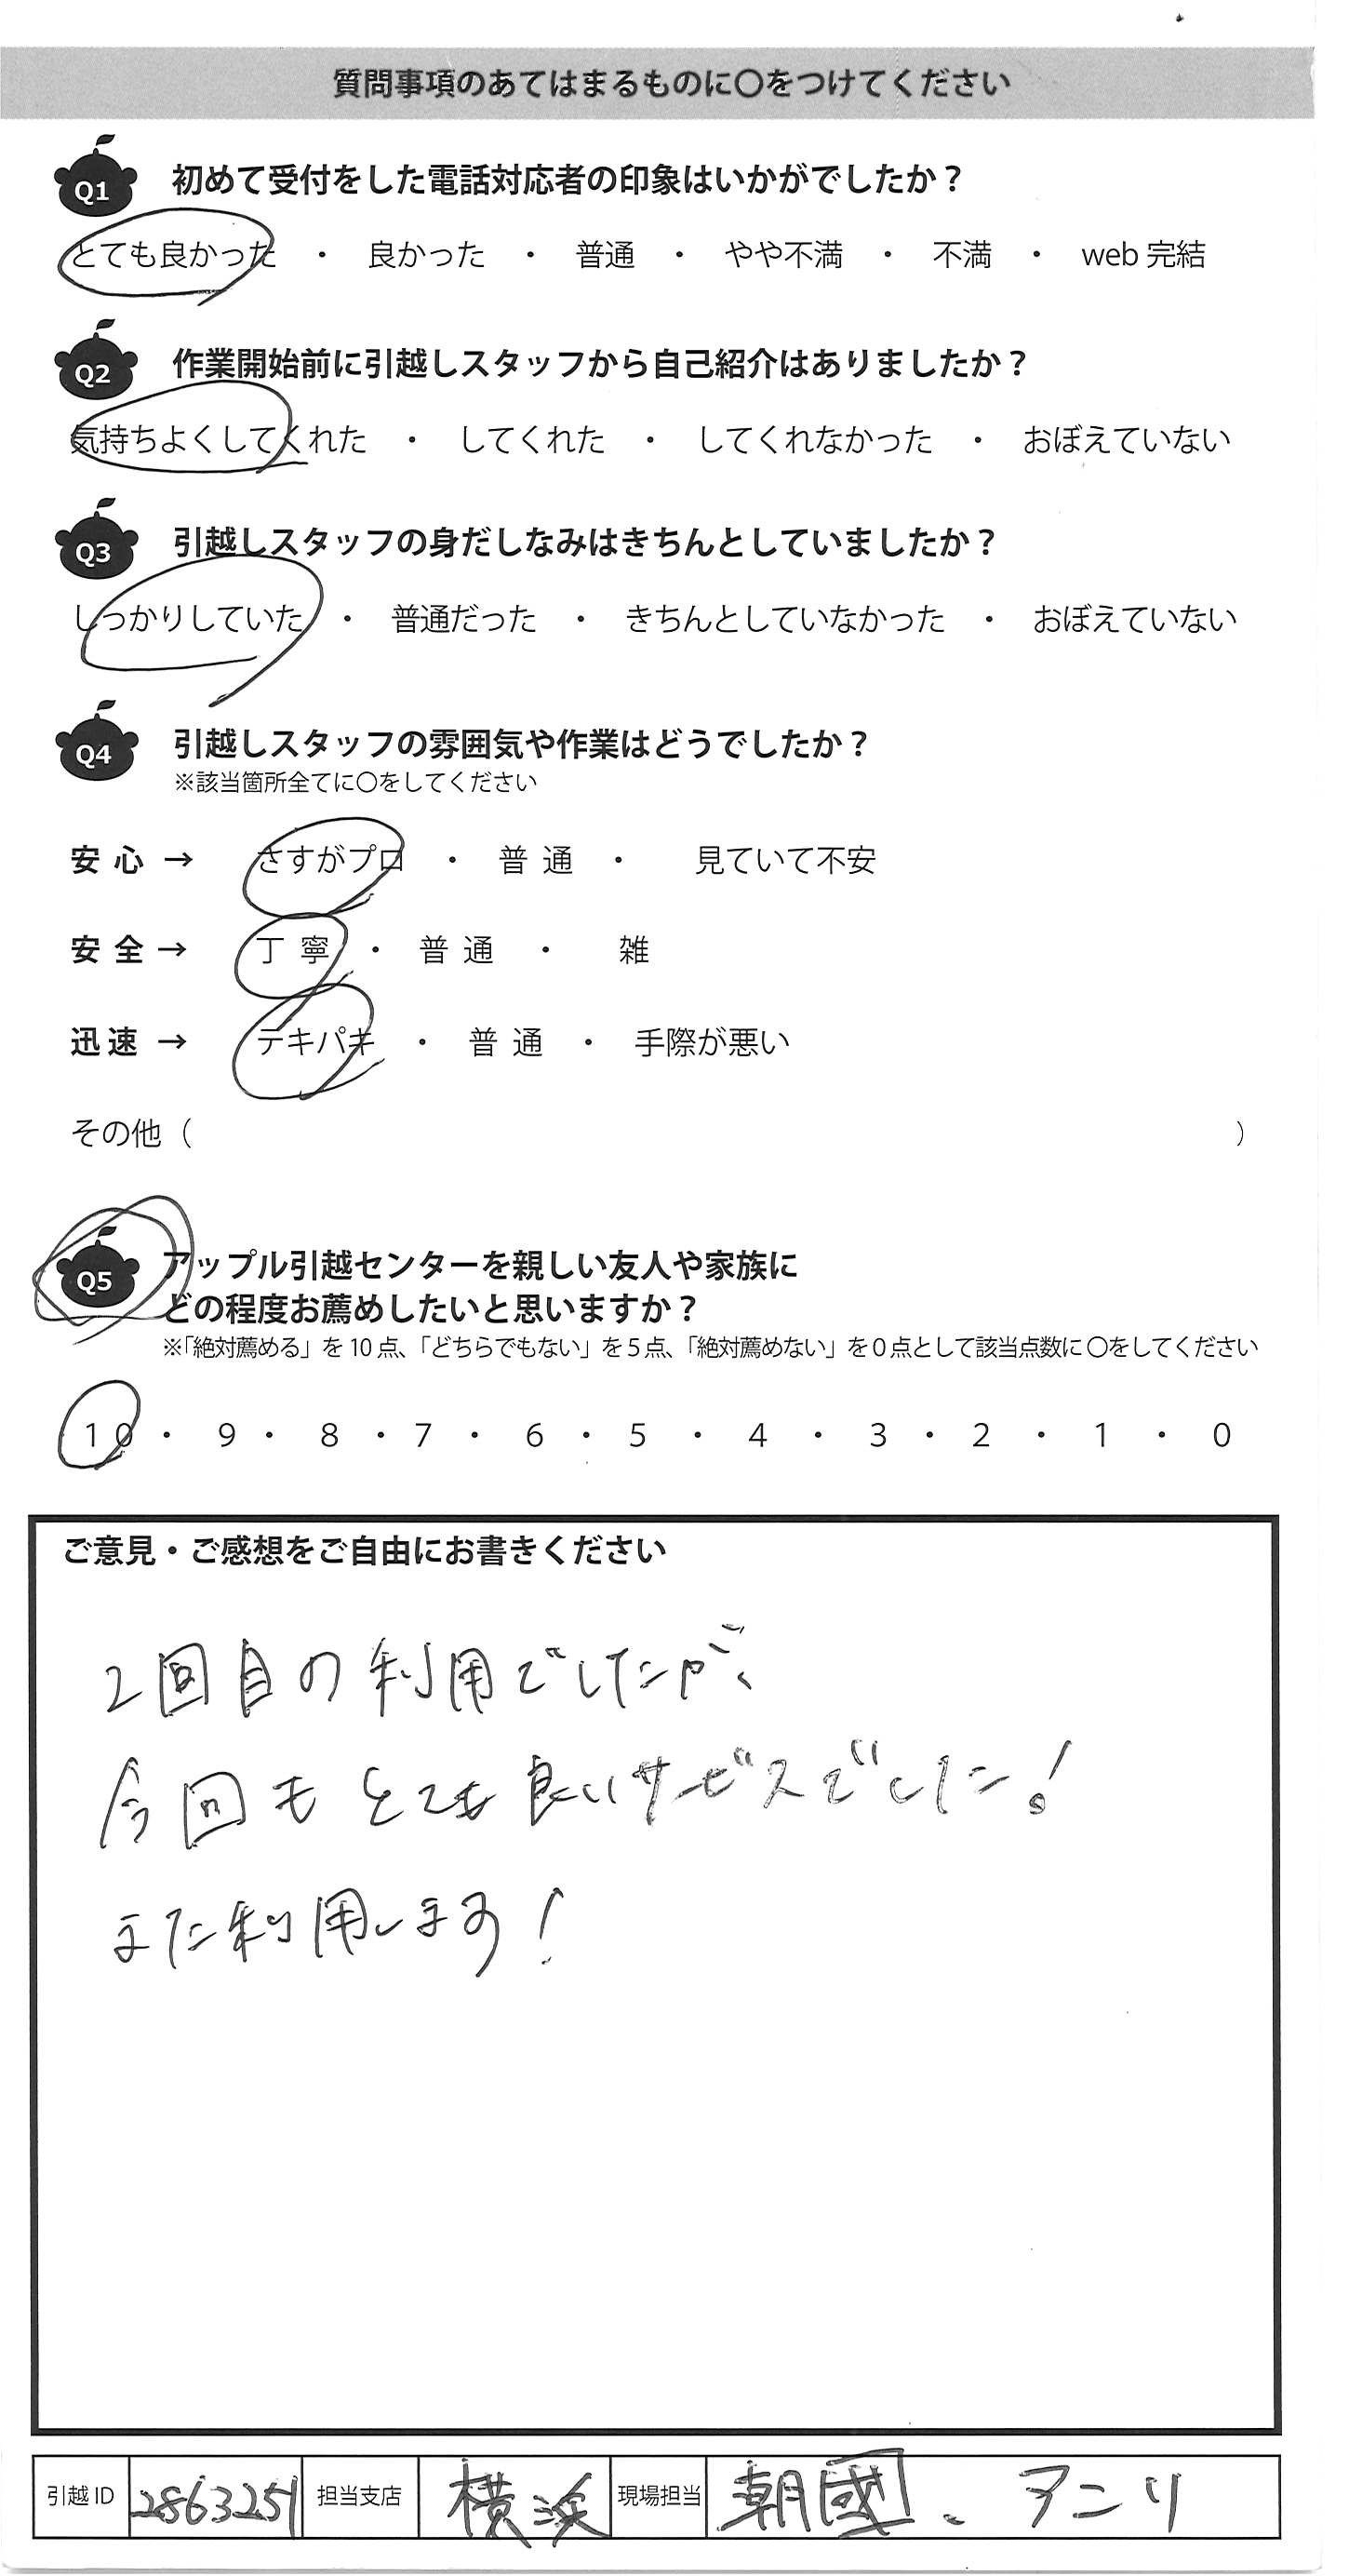 質問事項のあてはまるものに〇をつけてください
Q1 初めて受付をした電話対応者の印象はいかがでしたか？
とても良かった ・ 良かった ・ 普通 ・ やや不満 ・ 不満 ・ web 完結
Q2 作業開始前に引越しスタッフから自己紹介はありましたか？
気持ちよくしてくれた ・ してくれた ・ してくれなかった ・ おぼえていない
Q3 引越しスタッフの身だしなみはきちんとしていましたか？
しっかりしていた ・ 普通だった ・ きちんとしていなかった ・ おぼえていない
Q4 引越しスタッフの雰囲気や作業はどうでしたか？
※該当箇所全てに〇をしてください
安心 → さすがプロ ・ 普通 ・ 見ていて不安
安全 → 丁寧 ・ 普通 ・ 雑
迅速 → テキパキ ・ 普通 ・ 手際が悪い
その他（ ）
Q5 アップル引越センターを親しい友人や家族に
どの程度お薦めしたいと思いますか？
※「絶対薦める」を10点、「どちらでもない」を5点、「絶対薦めない」を0点として該当点数に〇をしてください
10 ・ 9 ・ 8 ・ 7 ・ 6 ・ 5 ・ 4 ・ 3 ・ 2 ・ 1 ・ 0
ご意見・ご感想をご自由にお書きください
2回目の利用でしたが、
今回もとても良いサービスでした！
また利用します！
引越ID 2863251 担当支店 横浜 現場担当 朝國、アニリ